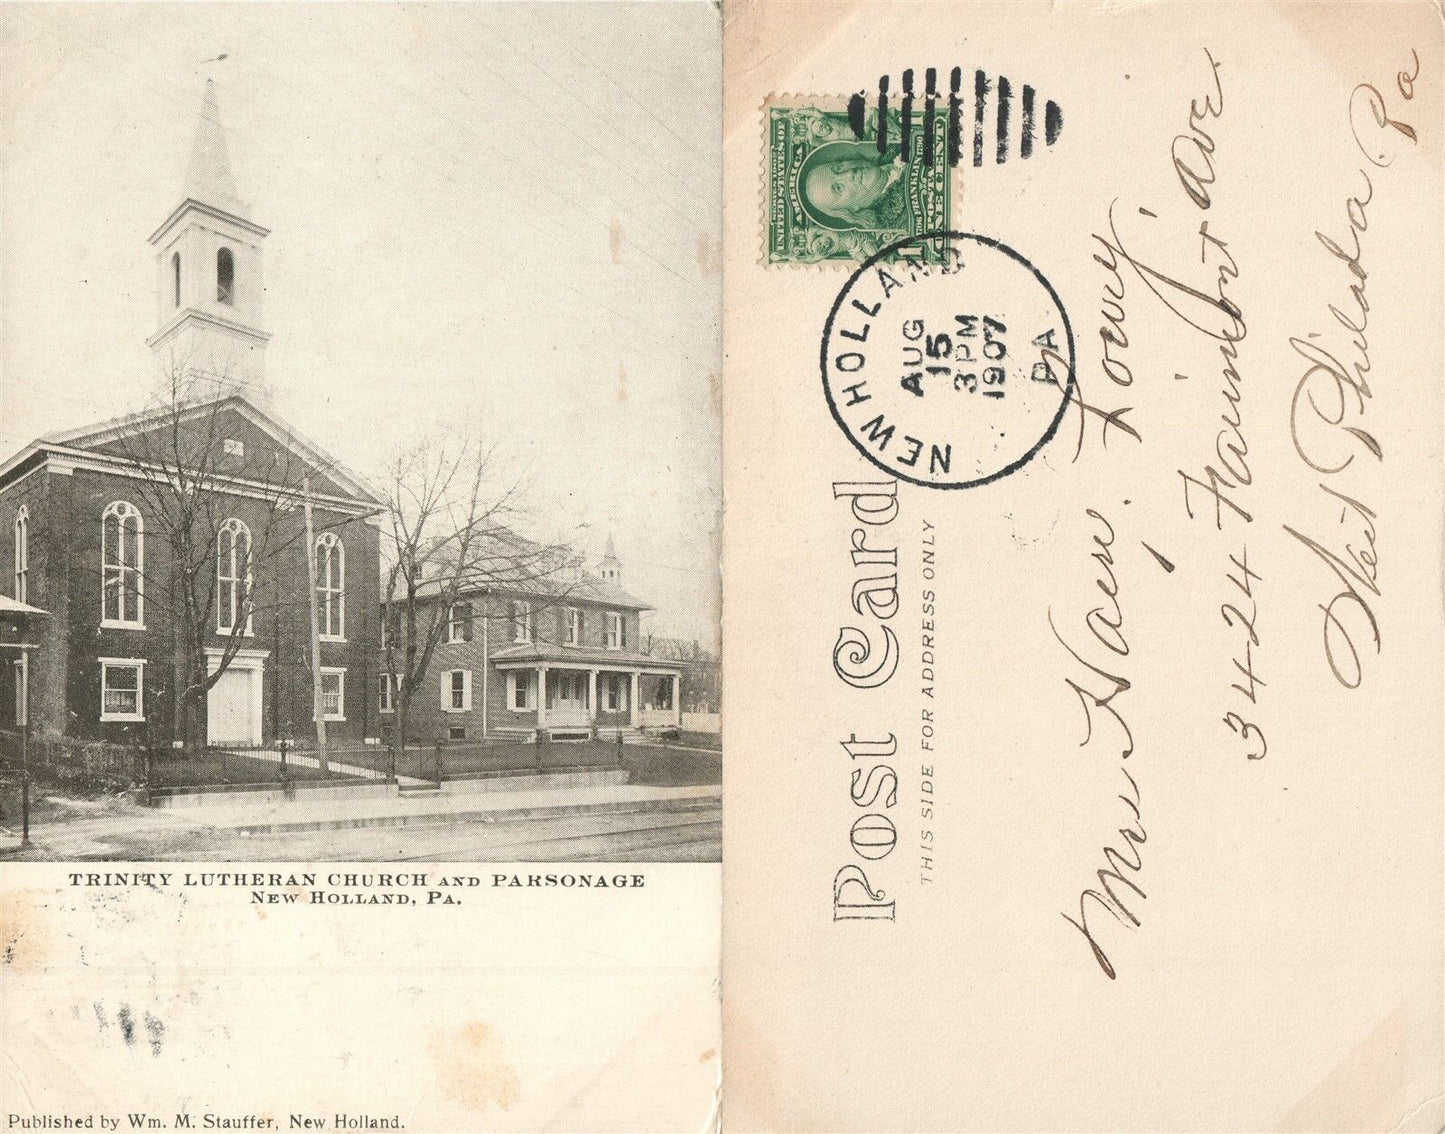 TRINITY LUTHERAN CHURCH AND PARSONAGE
NEW HOLLAND, PA.
Published by Wm. M. Stauffer, New Holland.
Post Card
THIS SIDE FOR ADDRESS ONLY
SERIES 1902
UNITED STATES OF
AMERICA
1706 FRANKLIN 1790
POSTAGE
ONE CENT
1
NEW HOLLAND
PA
AUG
15
3 PM
1907
Mrs
3424 Fairmont Ave.
West Philada Pa